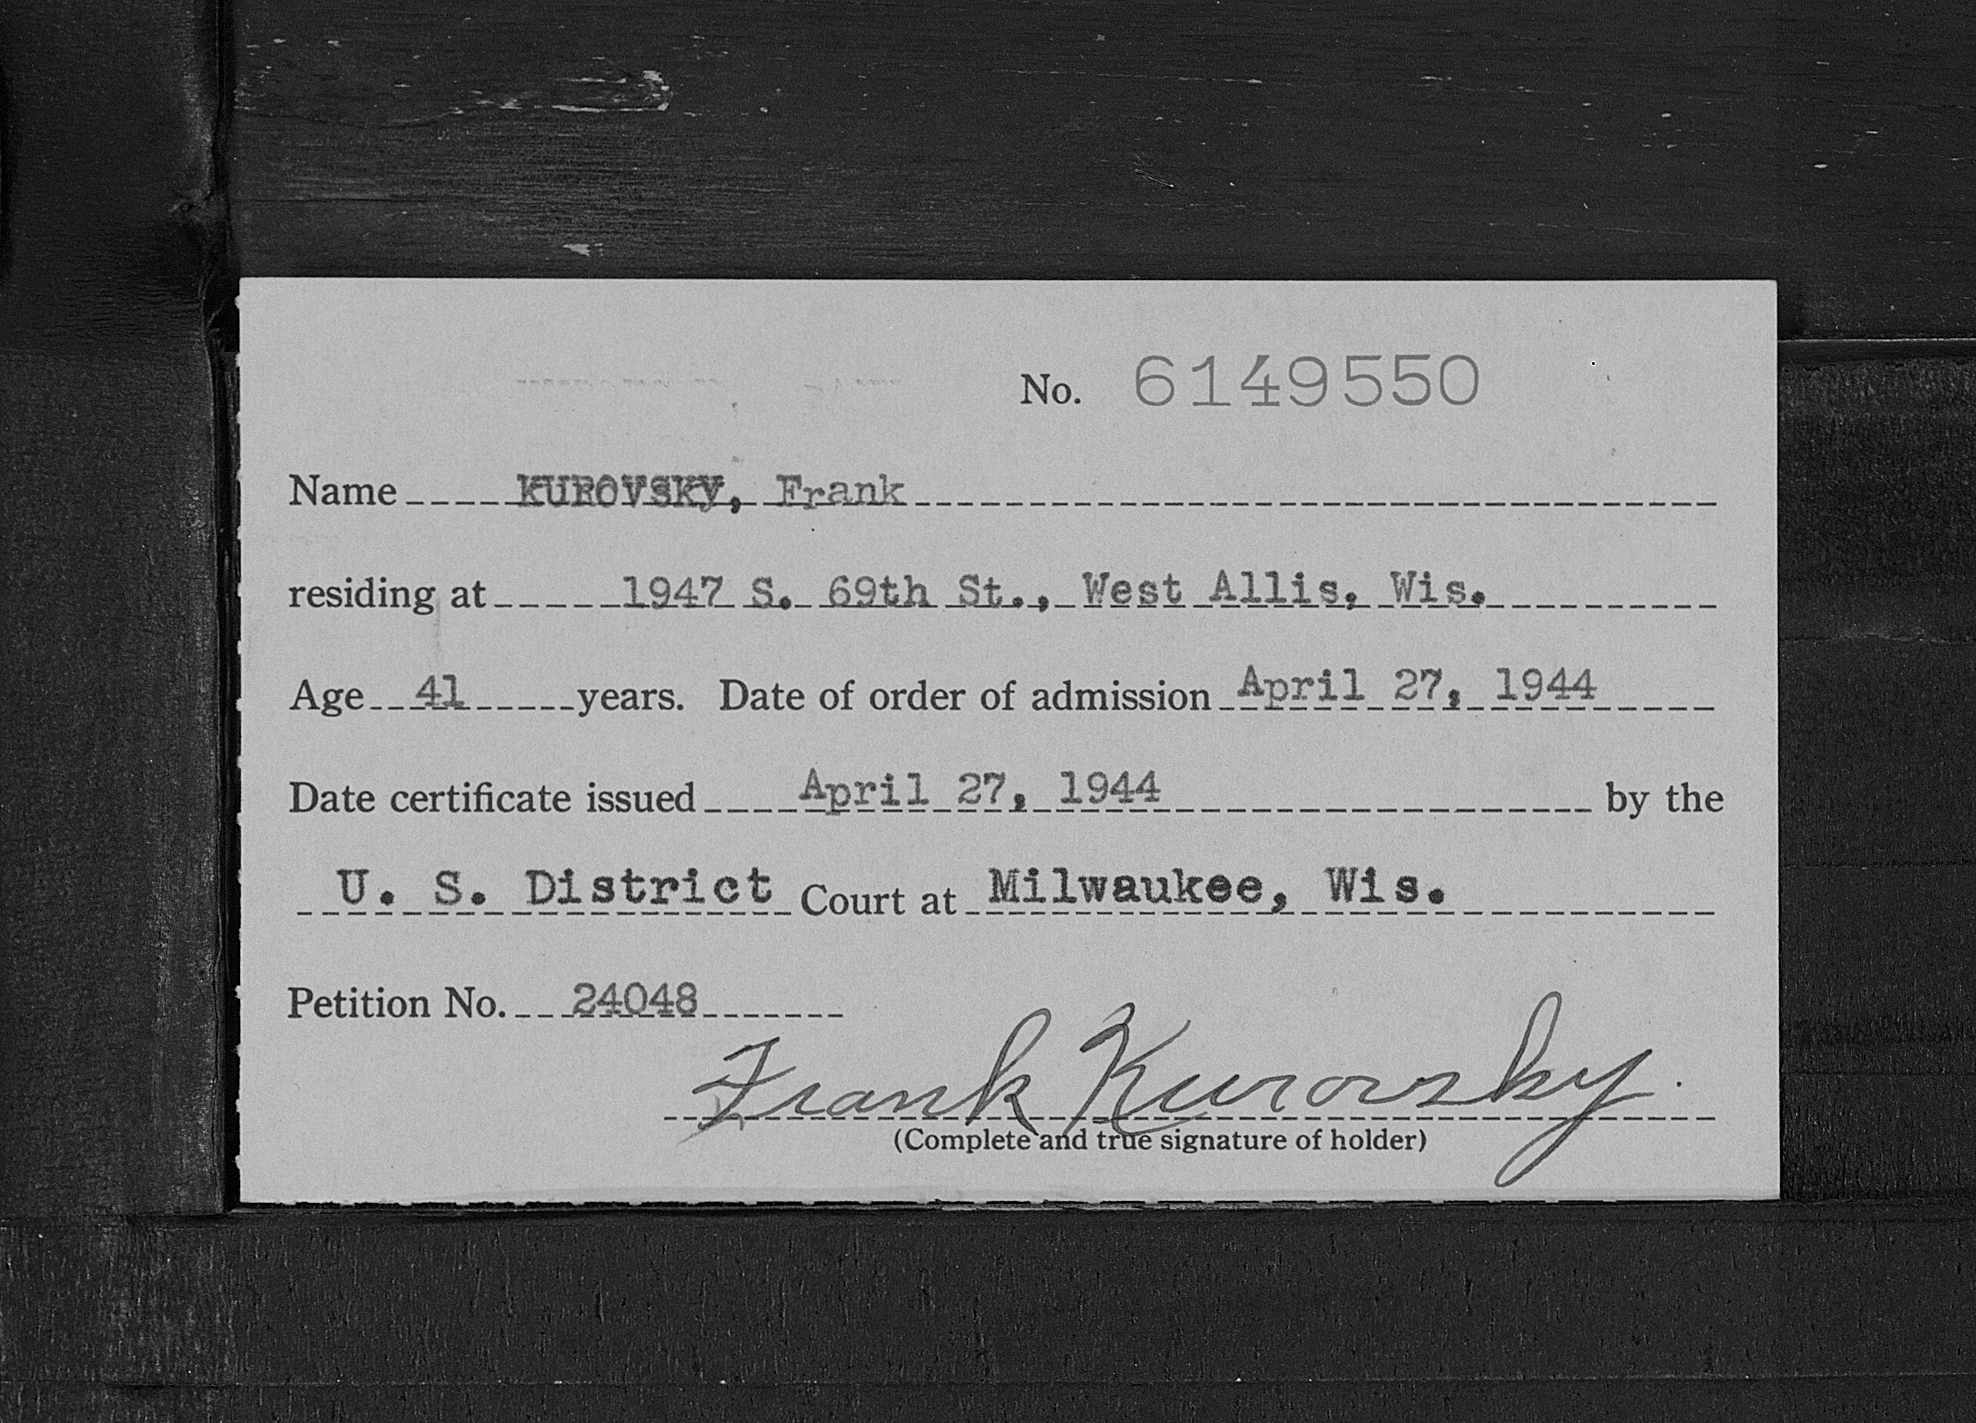 No. 6149550
Name KUROVSKY, Frank
residing at 1947 S. 69th St., West Allis, Wis.
Age 41 years. Date of order of admission April 27, 1944
Date certificate issued April 27, 1944 by the
U. S. District Court at Milwaukee, Wis.
Petition No. 24048
Frank Kurovsky.
(Complete and true signature of holder)